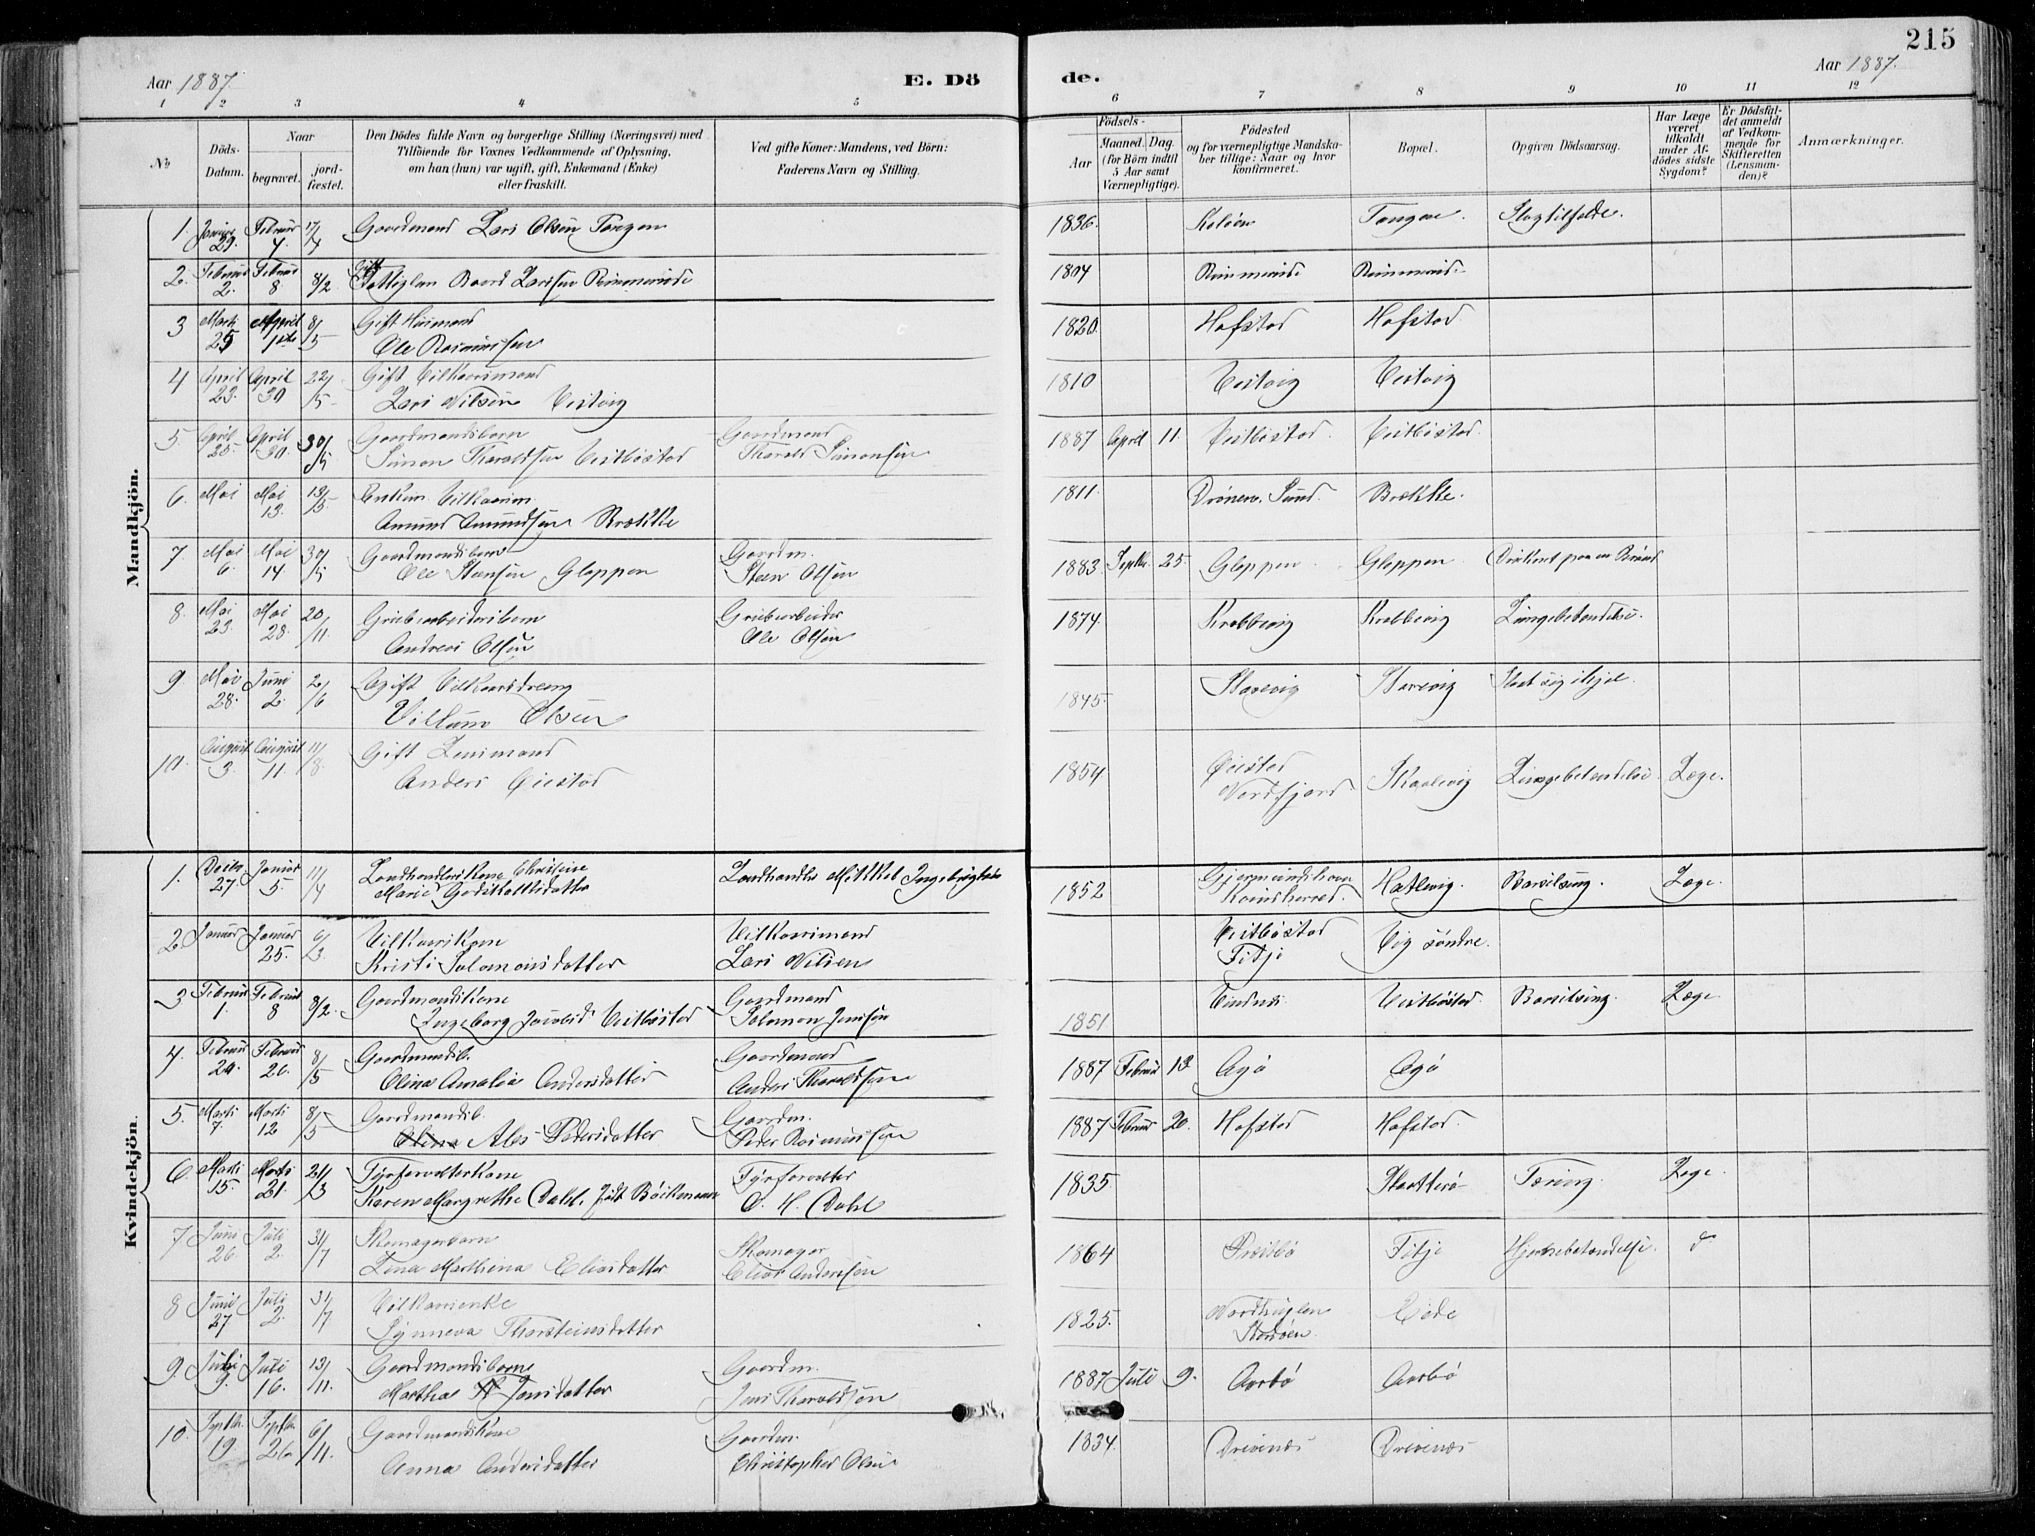 215
Aar 1887.
E. Dö
de.
Aar 1887.
1 2 3 4 5 6 7 8 9 10 11 12
No
Döds-Datum.
Naar
begravet.
jord-fæstet.
Den Dödes fulde Navn og borgerlige Stilling (Næringsvei) med
Tilföiende for Voxnes Vedkommende af Oplysning,
om han (hun) var ugift, gift, Enkemand (Enke)
eller fraskilt.
Ved gifte Koner: Mandens, ved Börn:
Faderens Navn og Stilling.
Födsels-
Aar
Maaned. Dag.
(for Börn indtil
5 Aar samt
Værnepligtige).
Födested
og for værnepligtige Mandska-
ber tillige: Naar og hvor
konfirmeret.
Bopæl.
Opgiven Dödsaarsag.
Har Læge
været
tilkaldt
under Af-
dödes sidste
Sygdom?
Er Dödsfal-
det anmeldt
af Vedkom-
mende for
Skifteretten
(Lensman-
den)?
Anmærkninger.
Mandkjön.
1. Januar 29. Februar 7. Gaardmand Lars Olsen Tangen 1836. Tangen. Slagtilfælde.
2. Februar 2. Februar 8. 8/2 Baard Larsen Rimmereide 1804 Rimmereide Rimmereide
3 Marts 25 April 8/5 Gift Huusmand
Ole Rasmussen 1820. Hofstad Hofstad
4 April 23. April 30 22/5 Gift Vilkaarsmand
Lars Nilsen Vestvig 1810 Vestvig Vestvig
5. April 25. April 30. 30/5 Gaardmandsbarn
Simon Tharaldsen Vestbøstad Gaardmand
Tharald Simonsen 1887 April 11. Vestbøstad. Vestbøstad.
6. Mai Mai 13. 13/5 Enkem. Vilkaarsm.
Amund Amundsen Brække 1811. Drönen, Sund. Brække.
7. Mai 6. Mai 14 30/5 Gaardmandsbarn
Ole Steensen Gloppen Gaardm.
Steen Olsen 1883. Septbr. 25. Gloppen Gloppen Druknet paa en Brønd
8. Mai 23. Mai 28. 20/11 Grubearbeidersbarn
Andreas Olsen Grubearbeider
Ole Olsen 1874 Krabbevig Krabbevig Lungebetændelse.
9 Mai 28. Juni 2. 2/6 Gift Vilkaarsdreng
Villum Olsen 1845. Starevig Starevig Slået sig ihjel.
10. August 3. August 11. 11/8. Gift Lensmand
Anders Øiestad 1854 Øiestad
Nordfjord Skaalevig Lungebetændelse. Læge.
Kvindekjön.
1. Decbr. 27. Januar 5. 11/4 Landhandlerkone Christine
Marie Landhandler Mikkel Ingebrigtsen 1852 Gjermundshavn
Kvindherred. Hatlevig. Barselseng. Læge.
2. Januar Januar 25. 6/3. Vilkaarskone
Kristi Salamonsdatter Vilkaarsmand
Lars Nilsen Vestbøstad
Fitje Vig søndre.
3 Februar 1. Februar 8 8/2. Gaardmandskone
Ingeborg Jacobsd. Vestbøstad Gaardmand
Salamon Jensen 1851 Vestbøstad. Barselseng. Læge
4. Februar Februar 26. 8/5 Gaardmandsb.
Olina Amalia Andersdatter Gaardmand
Anders Tharaldsen 1887 Februar 13. Agø Agø
5. Marts 7. Marts 12 8/5 Gaardmandsb.
Olina Ales Pedersdatter Gaardm.
Peder Rasmussen 1887 Februar 20. Hofstad Hofstad.
6. Marts 15. Marts 21. 21/3 Fyrforvalterkone
Karen Margrethe Dahl. født Fyrforvalter
O. H. Dahl 1835. Slaatterø Tæring. Læge.
7 Juni 26. Juli 2. 31/7 Skomagerbarn
Lina Marthina Eliasdatter Skomager
Elias Andersen 1864 Præstbø Fitje Hjernebetændelse. d
8 Juni 27 Juli 2. 31/7 Vilkaarsenke
Synneva Thorsteinsdatter 1825. Nordhuglen
Stordøen. Eide
9. Juli 9. Juli 16. 13/11. Gaardmandsbarn
Martha Jensdatter Gaardm.
Jens Tharaldsen 1887 Juli 9. Aarbø Aarbø
10. Septbr. 19. Septbr. 26 6/11. Gaardmandskone
Anna Andersdatter Gaardm.
Christopher Olsen 1834. Drivenes Drivenes